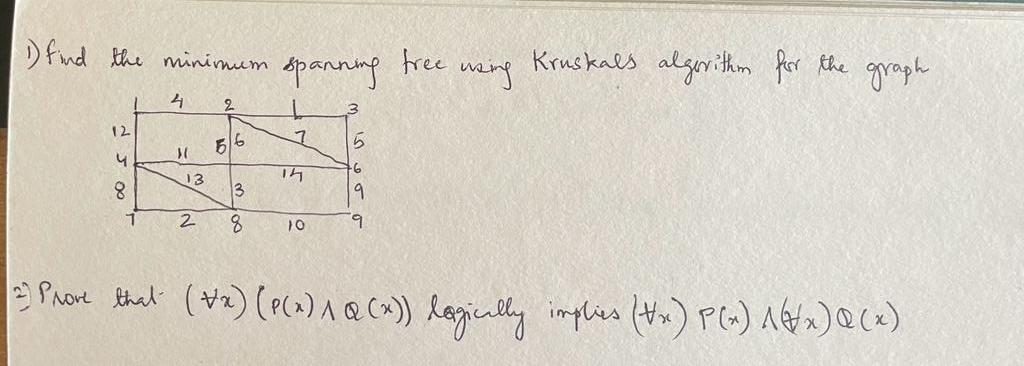 1) find the minimum spanning tree using Kruskals algorithm for the graph
1 4 2 1 3
12 5 6 7 5
4 11 14 6
8 13 3 9
7 2 8 10 9
2) Prove that (∀x) (P(x) ∧ Q(x)) logically implies (∀x) P(x) ∧ (∀x) Q(x)